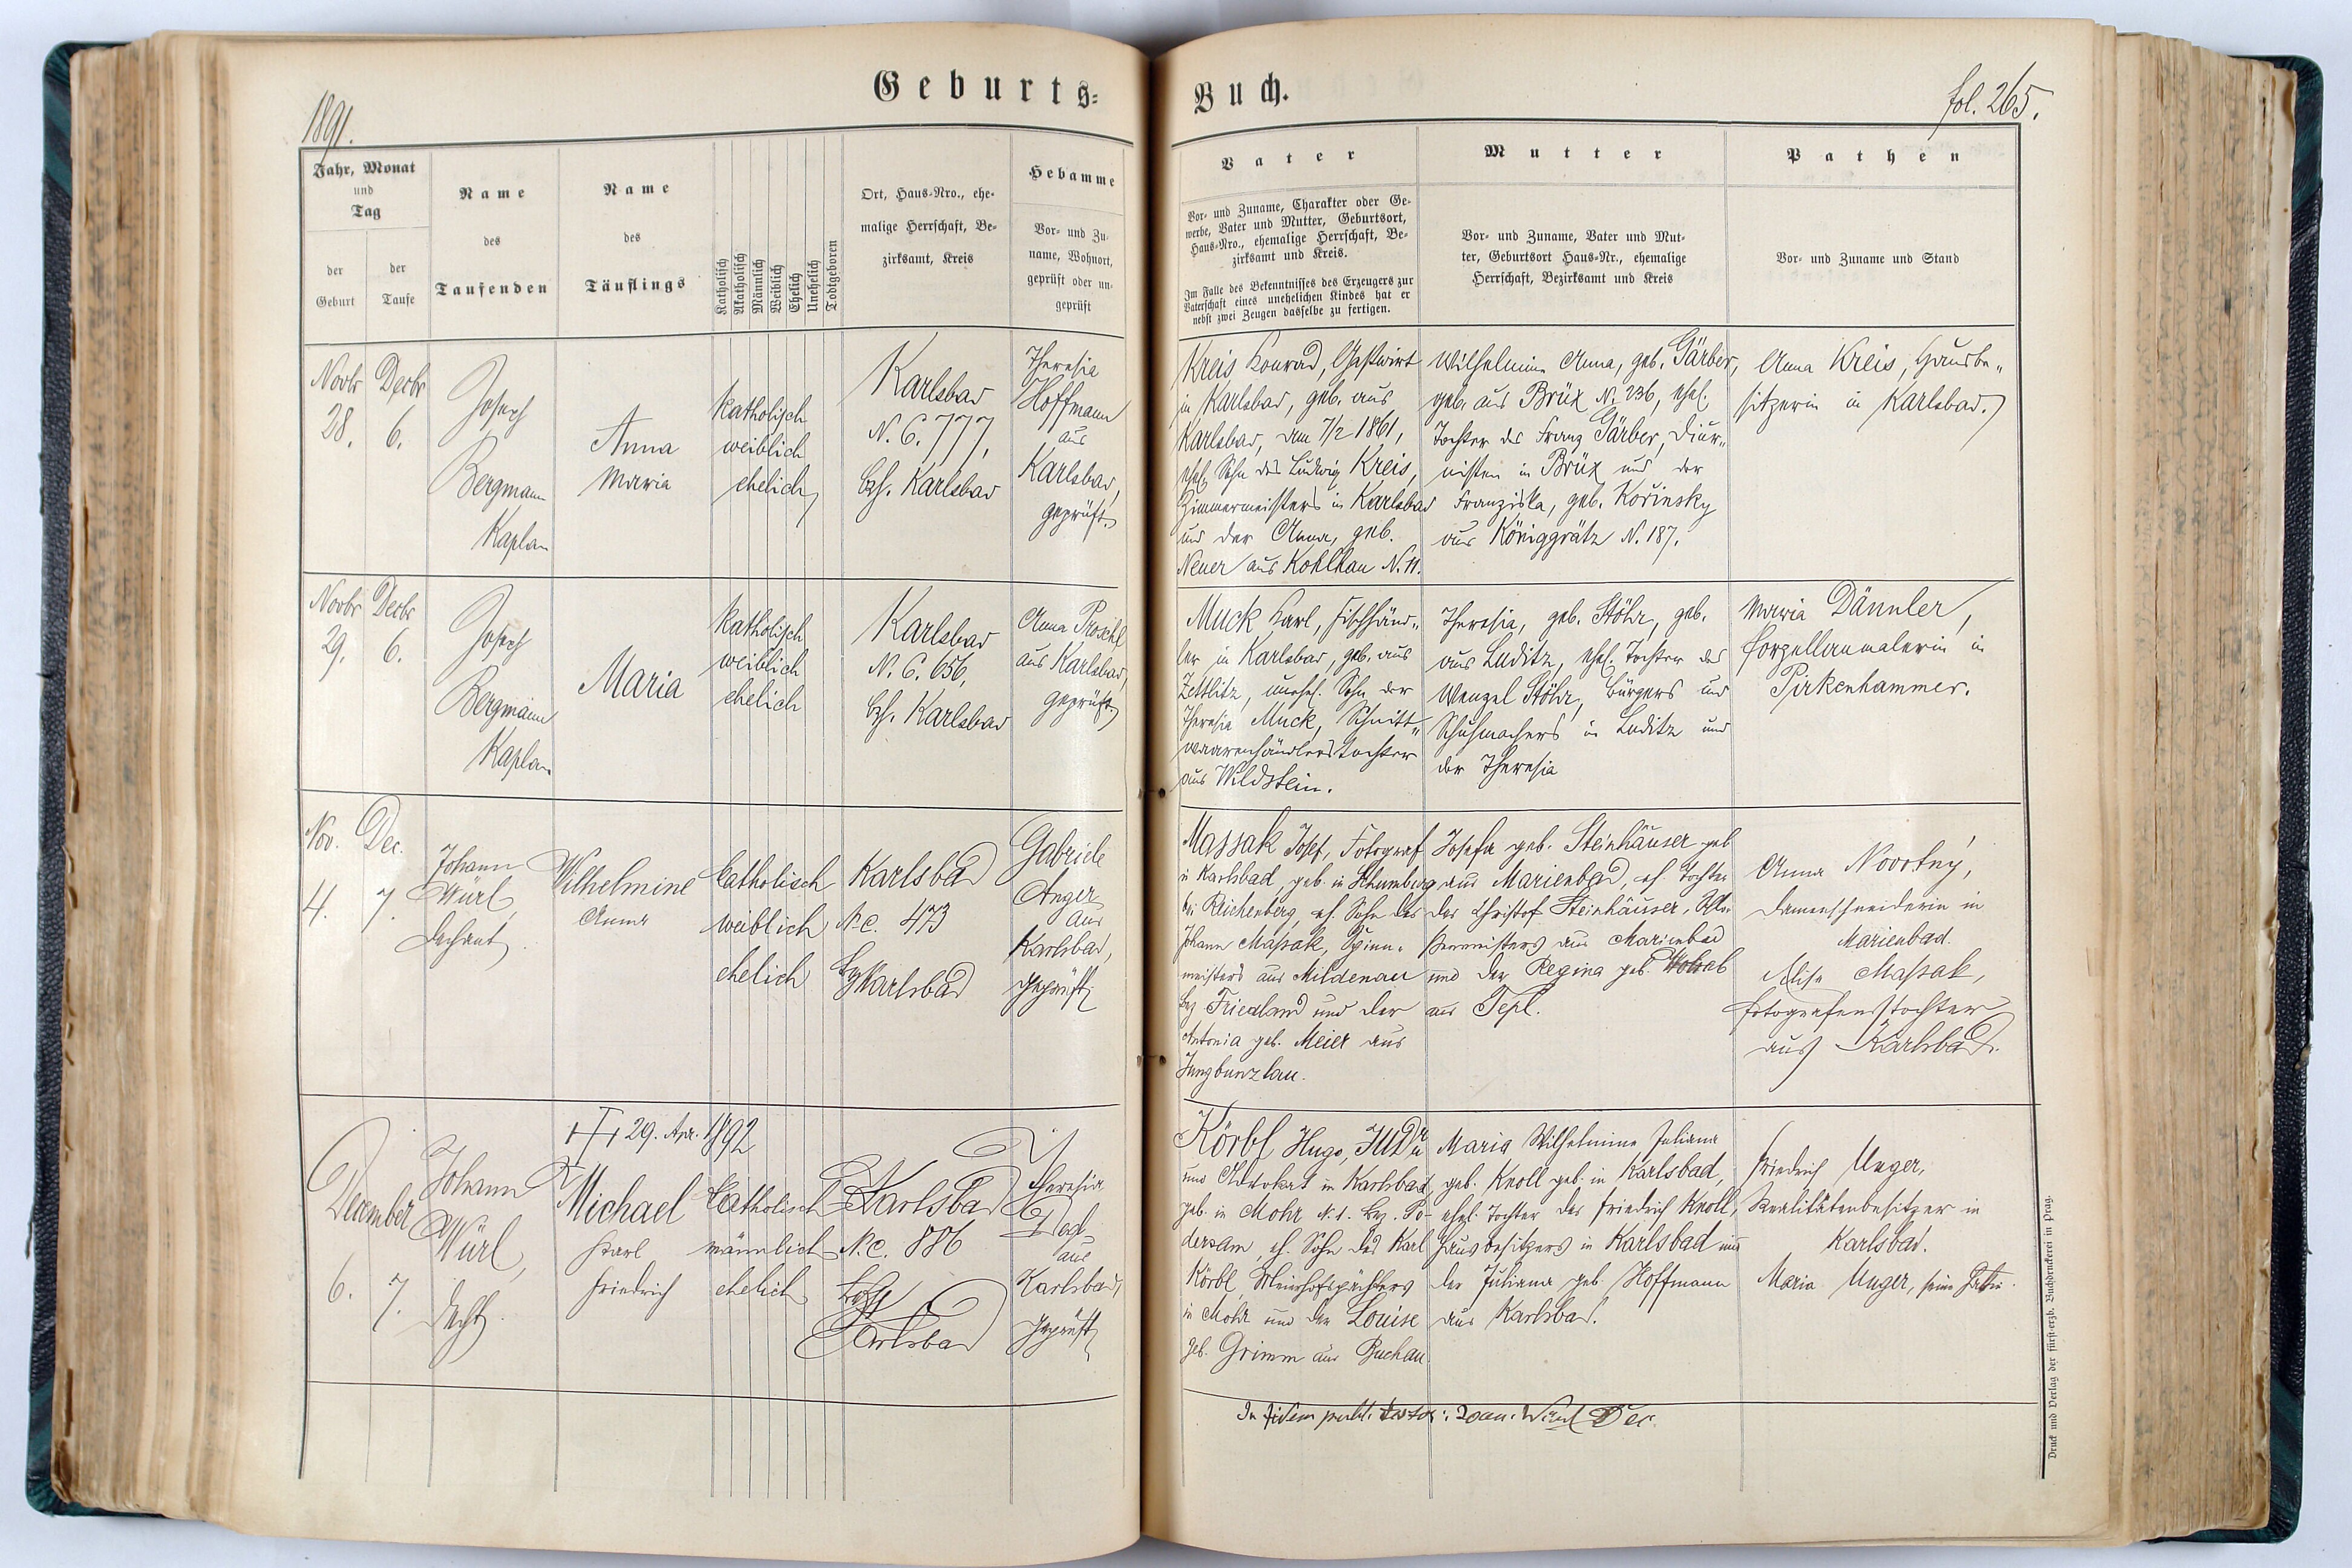 Geburts-
Buch.
1891.
fol. 265.
Jahr, Monat
und
Tag
der
Geburt
der
Taufe
Name
des
Taufenden
Name
des
Täuflings
Katholisch
Akatholisch
Männlich
Weiblich
Ehelich
Unehelich
Todtgeboren
Ort, Haus-Nro., ehe-
malige Herrschaft, Be-
zirksamt, Kreis
Hebamme
Vor- und Zu-
name, Wohnort,
geprüft oder un-
geprüft
Vater
Vor- und Zuname, Charakter oder Ge-
werbe, Vater und Mutter, Geburtsort,
Haus-Nro., ehemalige Herrschaft, Be-
zirksamt und Kreis.
Im Falle des Bekenntnisses des Erzeugers zur
Vaterschaft eines unehelichen Kindes hat er
nebst zwei Zeugen dasselbe zu fertigen.
Mutter
Vor- und Zuname, Vater und Mut-
ter, Geburtsort Haus-Nr., ehemalige
Herrschaft, Bezirksamt und Kreis
Pathen
Vor- und Zuname und Stand
Novbr
28.
Decbr
6.
Joseph
Bergmann
Kaplan
Anna
Maria
katholisch
weiblich
ehelich
Karlsbad
N. C. 777,
Bzh. Karlsbad
Theresia
Hoffmann
aus
Karlsbad,
geprüft.
Kreis Konrad, Gastwirt
in Karlsbad, geb. aus
Karlsbad, am 7/2 1861,
ehel. Sohn des Ludwig Kreis,
Zimmermeisters in Karlsbad
und der Anna, geb.
Neuer aus Kohlhau N. 11.
Wilhelmine Anna, geb. Gärber,
geb. aus Brüx N. 236, ehel.
Tochter des Franz Gärber, Diur-
nisten in Brüx und der
Franziska, geb. Kořinsky
aus Königgrätz N. 187.
Anna Kreis, Hausbe-
sitzerin in Karlsbad.
Novbr
29.
Decbr
6.
Joseph
Bergmann
Kaplan
Maria
katholisch
weiblich
ehelich
Karlsbad
N. C. 656,
Bzh. Karlsbad
Anna Proschl
aus Karlsbad,
geprüft.
Muck Karl, Fischhänd-
ler in Karlsbad, geb. aus
Zettlitz, unehel. Sohn der
Theresia Muck, Schnitt-
waarenhändlerstochter
aus Wildstein.
Theresia, geb. Stöhr, geb.
aus Luditz, ehel. Tochter des
Wenzel Stöhr, Bürgers und
Schuhmachers in Luditz und
der Theresia
Maria Dännler,
Porzellanmalerin in
Pirkenhammer.
Nov.
4.
Dec.
7.
Johann
Würl,
Dechant
Wilhelmine
Anna
Catholisch
weiblich
ehelich
Karlsbad
N.C. 473
Bz Karlsbad
Gabriele
Anger
aus
Karlsbad,
geprüft
Massak Josef, Fotograf
in Karlsbad, geb. in
bei Reichenberg, eh. Sohn des
Johann Massak, Spinn-
meisters aus Mildenau
Bez Friedland und der
Antonia geb. Meier aus
Jungbunzlau.
Josefa geb. Steinhäuser geb
aus Marienbad, eh. Tochter
des Christof Steinhäuser,
aus Marienbad
und der Regina geb.
aus Tepl.
Anna Novotný,
Damenschneiderin in
Marienbad.
Alise Massak,
Fotografenstochter
aus Karlsbad.
29. Apr. 1892
December
6.
7.
Johann
Würl,
Decht
Michael
Karl
Friedrich
Catholisch
männlich
ehelich
Karlsbad
N.C. 886
Bzh
Karlsbad
Theresia
aus
Karlsbad,
geprüft
Körbl Hugo, JUDr
und Advokat in Karlsbad,
geb. in Mohr N. 1. Bez. Po-
dersam, eh. Sohn des Karl
Körbl, Meierhofspächters
in Mohr und der Louise
geb. Grimm aus Buchau
Maria Wilhelmine Juliana
geb. Knoll geb. in Karlsbad,
ehel. Tochter des Friedrich Knoll,
Hausbesitzers in Karlsbad und
der Juliana geb. Hoffmann
aus Karlsbad.
Friedrich Unger,
Realitätenbesitzer in
Karlsbad.
Maria Unger, seine Gattin.
In fidem publ. testor: Joan. Würl Dec.
Druck und Verlag der fürst-erzb. Buchdruckerei in Prag.